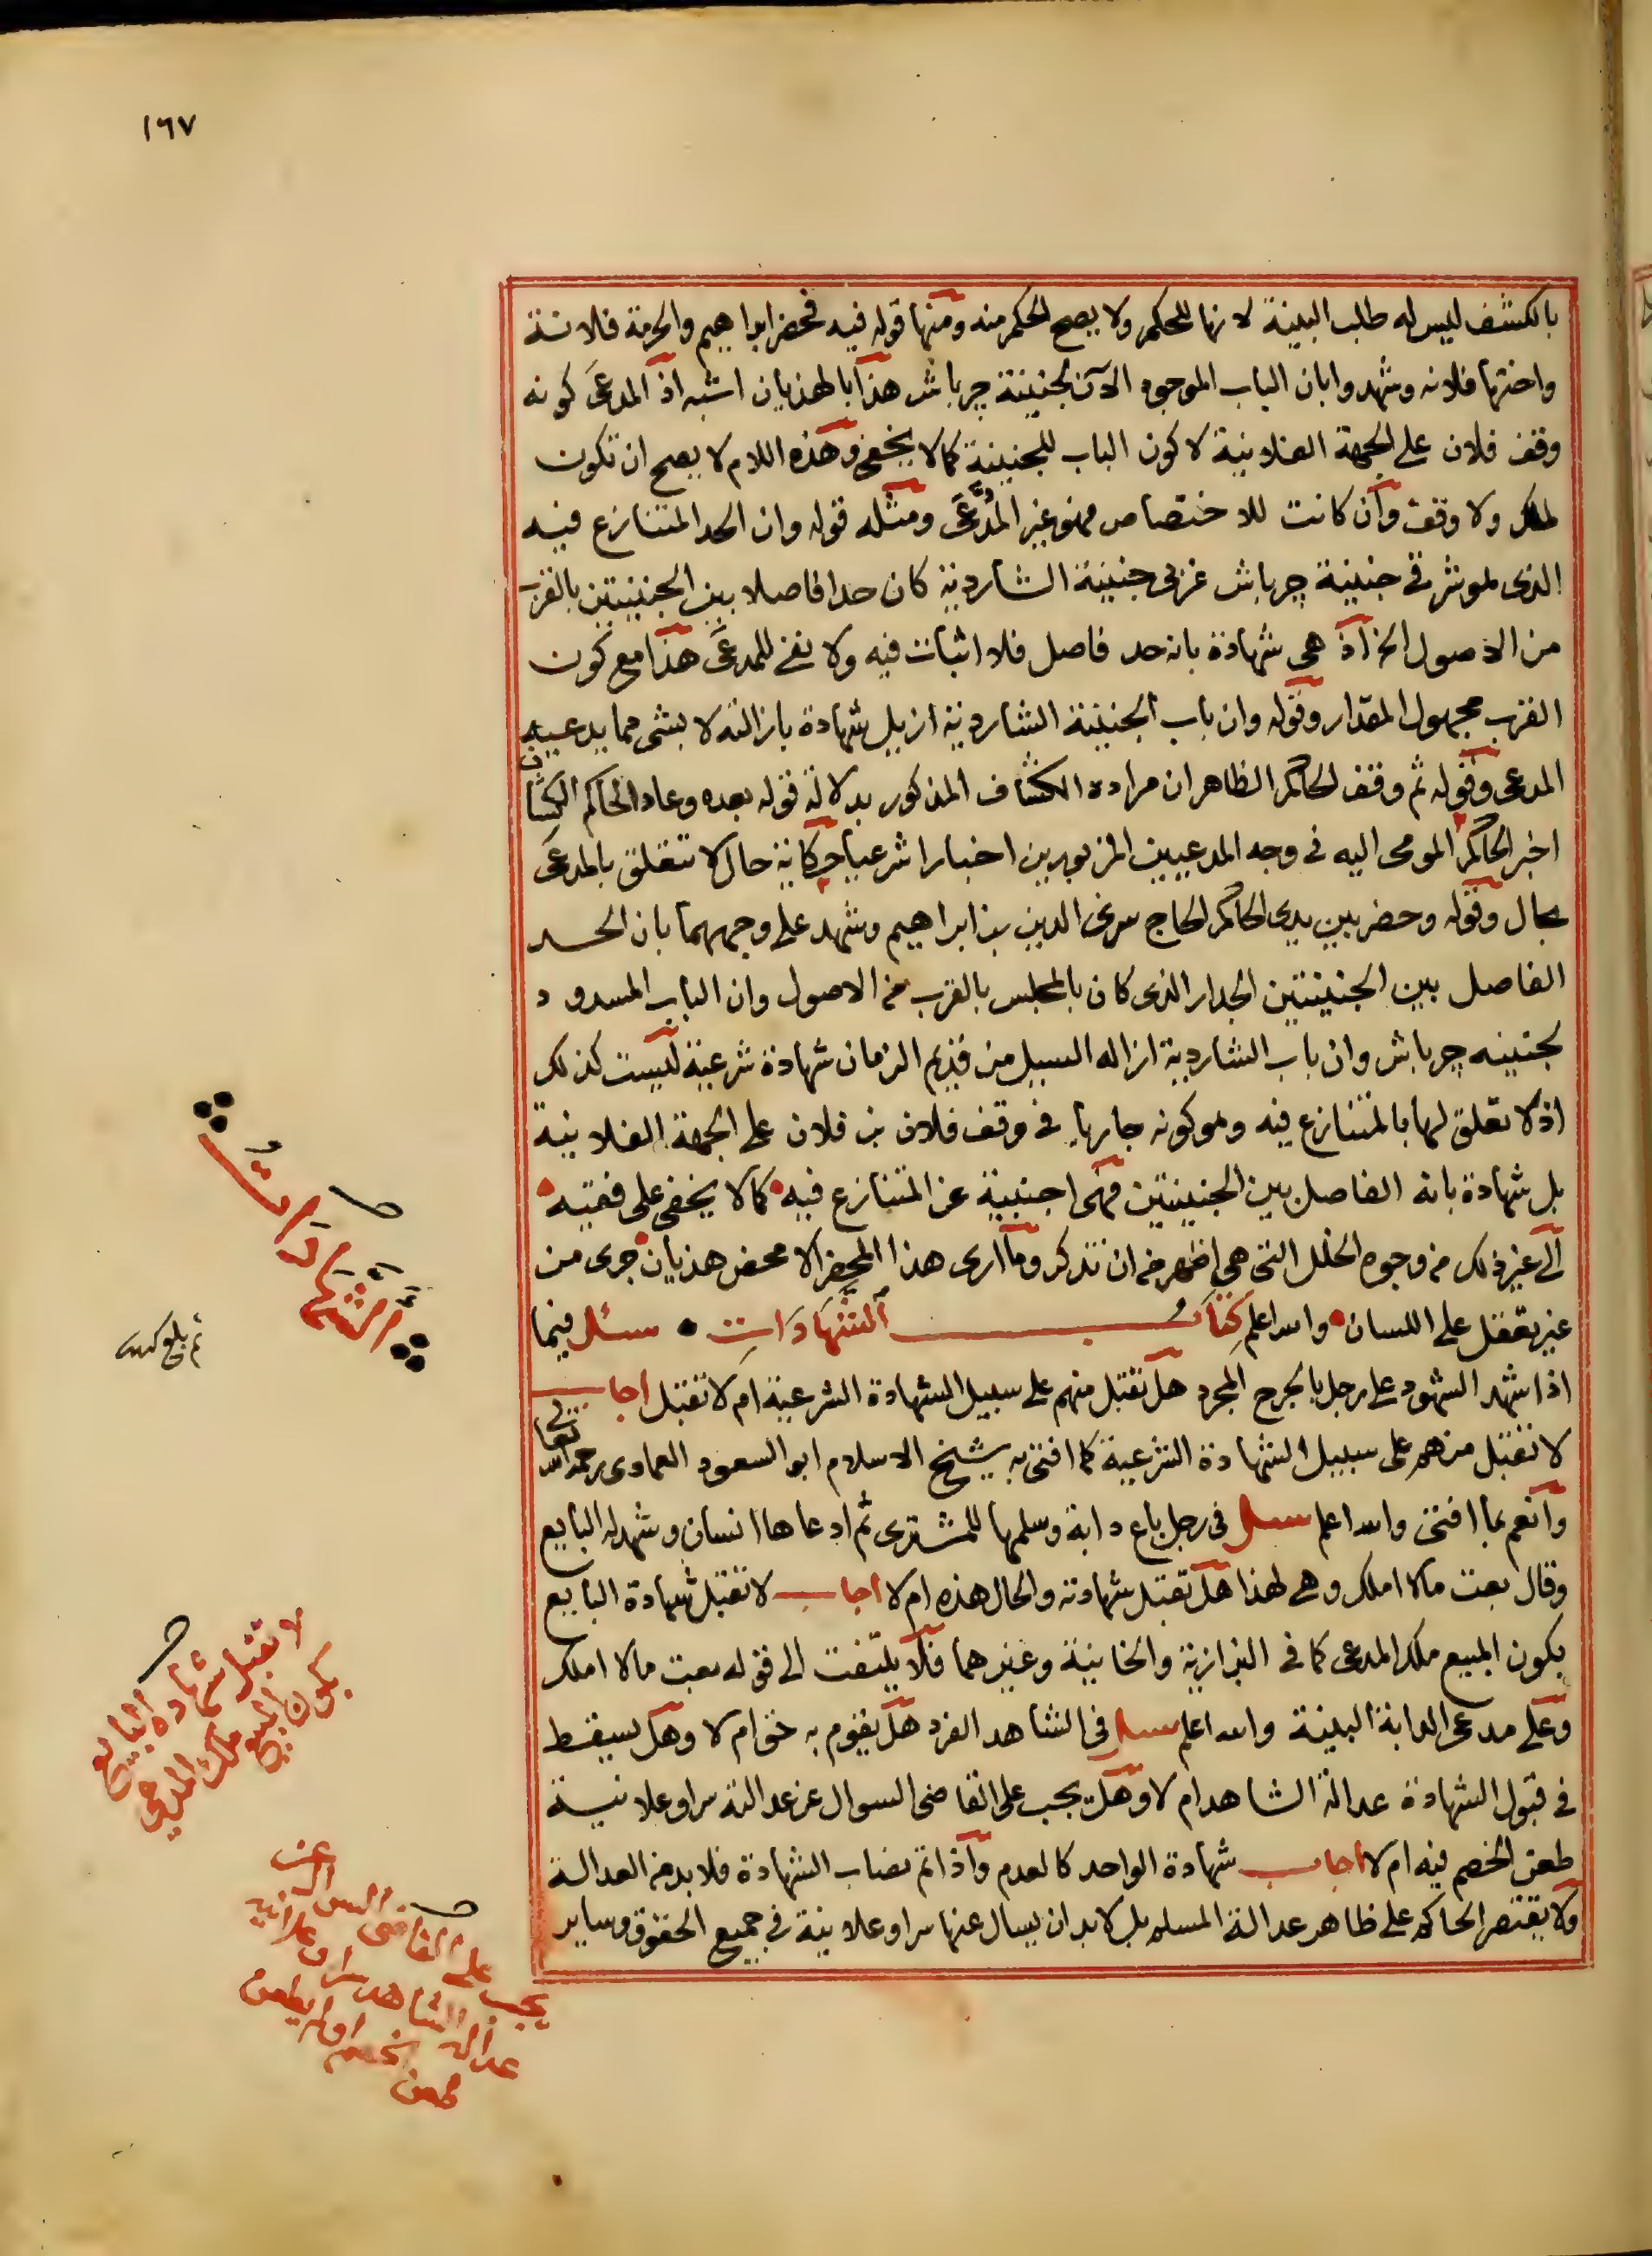 ١٦٧
بالكشف ليس له طلب البينة لانها للحكم ولا يصح الحكم منه ومنها قوله فيه فحضر ابراهيم والحرمة فلانة
واختها فلانه وشهدوا بان الباب الموجود الآن لجنينة جرباش هذا بالهذيان اشبه اذ المدعى كونه
وقف فلان على الجهة الفلانية لا كون الباب للجنينة كما لا يخفى وهذه اللام لا يصح ان تكون
لملك ولا وقف وان كانت للاختصاص فهو غير المدَّعى ومثله قوله وان الحد المتنازع فيه
الذى لهو شرقي جنينة جرباش غربى جنينة الشاردية كان حدا فاصلا بين الجنينتين بالقرب
من الاصول الخ اذ هى شهادة بانه حد فاصل فلا اثبات فيه ولا نفى للمدعى هذا مع كون
القرب مجهول المقدار وقوله وان باب الجنينة الشاردية ازيل شهادة بازالته لا بشى مما يدعيه
المدعى وقوله ثم وقف الحاكم الظاهر ان مراده الكشاف المذكور بدلالة قوله بعده وعاد الحاكم الكشاف
اخبر الحاكم المومى اليه فى وجه المدعيين المزبورين اخبارا شرعيا حكاية حال لا تتعلق بالمدعى
بحال وقوله وحضر بين يدى الحاكم الحاج سرى الدين بن ابراهيم وشهد على وجههما بان الحد
الفاصل بين الجنينتين الجدار الذى كان بالمجلس بالقرب من الاصول وان الباب المسدود
لجنينه جرباش وان باب الشاردية ازاله السيل من قديم الزمان شهادة شرعية ليست كذلك
اذ لا تعلق لها بالمتنازع فيه وهو كونه جاريا فى وقف فلان بن فلان على الجهة الفلانية
بل شهادة بانه الفاصل بين الجنينتين فهى اجنبية عن المتنازع فيه كما لا يخفى على فقيه
الى غير ذلك من وجوه الخلل التى هى اظهر من ان تذكر وما ارى هذا المحضر الا محض هذيان جرى من
غير تعقل على اللسان والله اعلم كتاب الشهادات سئل فيما
اذا شهد الشهود على رجل بالجرح المجرد هل تقبل منهم على سبيل الشهادة الشرعية ام لا تقبل اجاب
لا تقبل منهم على سبيل الشهادة الشرعية كما افتى به شيخ الاسلام ابو السعود العمادى رحمه الله تعالى
وانعم بما افتى والله اعلم سئل فى رجل باع دابة وسلمها للمشترى ثم ادعاها انسان وشهد له البايع
وقال بعت مالا املك وهى لهذا هل تقبل شهادته والحال هذه ام لا اجاب لا تقبل شهادة البايع
بكون المبيع ملك المدعى كما فى البزازية والخانية وغيرهما فلا يلتفت الى قوله بعت مالا املك
وعلى مدعى الدابة البينة والله اعلم سئل فى الشاهد الفرد هل يقوم به حق ام لا وهل يسقط
فى قبول الشهادة عدالة الشاهد ام لا وهل يجب على القاضى السوال عن عدالته سرا وعلانية
طعن الخصم فيه ام لا اجاب شهادة الواحد كالعدم واذا تم نصاب الشهادة فلا بد من العدالة
ولا يقتصر الحاكم على ظاهر عدالة المسلم بل لا بد ان يسال عنها سرا وعلانية فى جميع الحقوق وساير
الشَّهَادَاتُ
ثم بلغ
لا تقبل شهادة البايع
بكون المبيع ملك المدعى
يجب على القاضى السوال عن
عدالة الشاهد سرا وعلانية
الخصم او لم يطعن